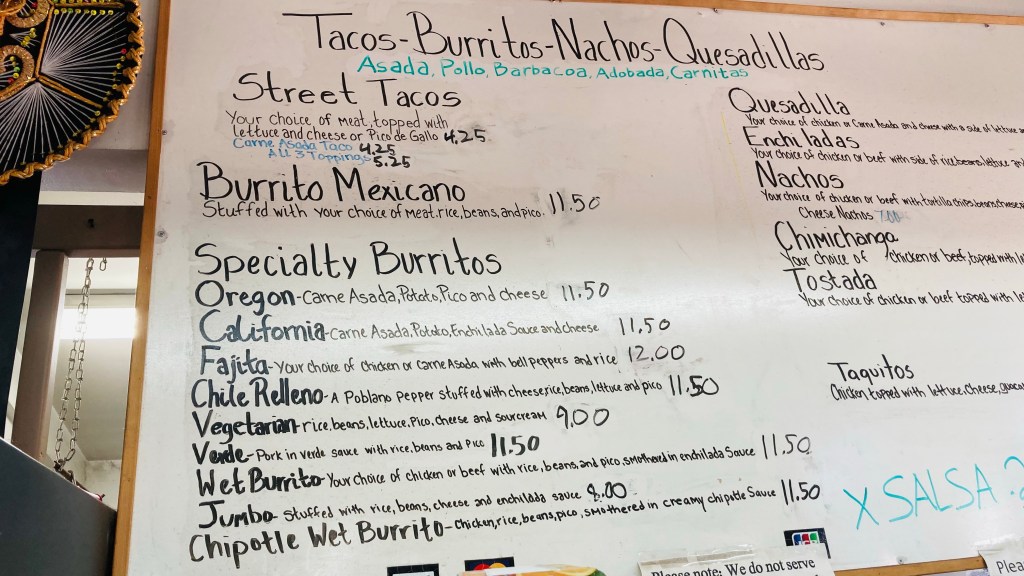 Tacos-Burritos-Nachos-Quesadillas
Asada, Pollo, Barbacoa, Adobada, Carnitas
Street Tacos
Your choice of meat, topped with
lettuce and cheese or Pico de Gallo 4.25
Carne Asada Taco 4.25
All 3 Toppings 5.25
Burrito Mexicano 11.50
Stuffed with your choice of meat, rice, beans, and pico.
Specialty Burritos
Oregon-Carne Asada, Potato, Pico and cheese 11.50
California-Carne Asada, Potato, Enchilada Sauce and cheese 11.50
Fajita-Your choice of chicken or Carne Asada with bell peppers and rice 12.00
Chile Relleno-A Poblano Pepper stuffed with cheese, rice, beans, lettuce and pico 11.50
Vegetarian-rice, beans, lettuce, Pico, cheese and sourcream 9.00
Verde-Pork in verde sauce with rice, beans and Pico 11.50
Wet Burrito-Your choice of chicken or beef with rice, beans, and pico, smothered in enchilada Sauce 11.50
Jumbo-Stuffed with rice, beans, cheese and enchilada sauce 8.00
Chipotle Wet Burrito-Chicken, rice, beans, pico, smothered in creamy chipotle Sauce 11.50
Quesadilla
Your choice of chicken or Carne Asada and cheese with a side of lettuce
Enchiladas
Your choice of chicken or beef with side of rice, beans, lettuce
Nachos
Your choice of chicken or beef with tortilla chips, beans, cheese
Cheese Nachos 7.00
Chimichanga
Your choice of chicken or beef, topped with
Tostada
Your choice of chicken or beef topped with
Taquitos
Chicken, topped with lettuce, cheese,
X SALSA
JCB
Please note: We do not serve